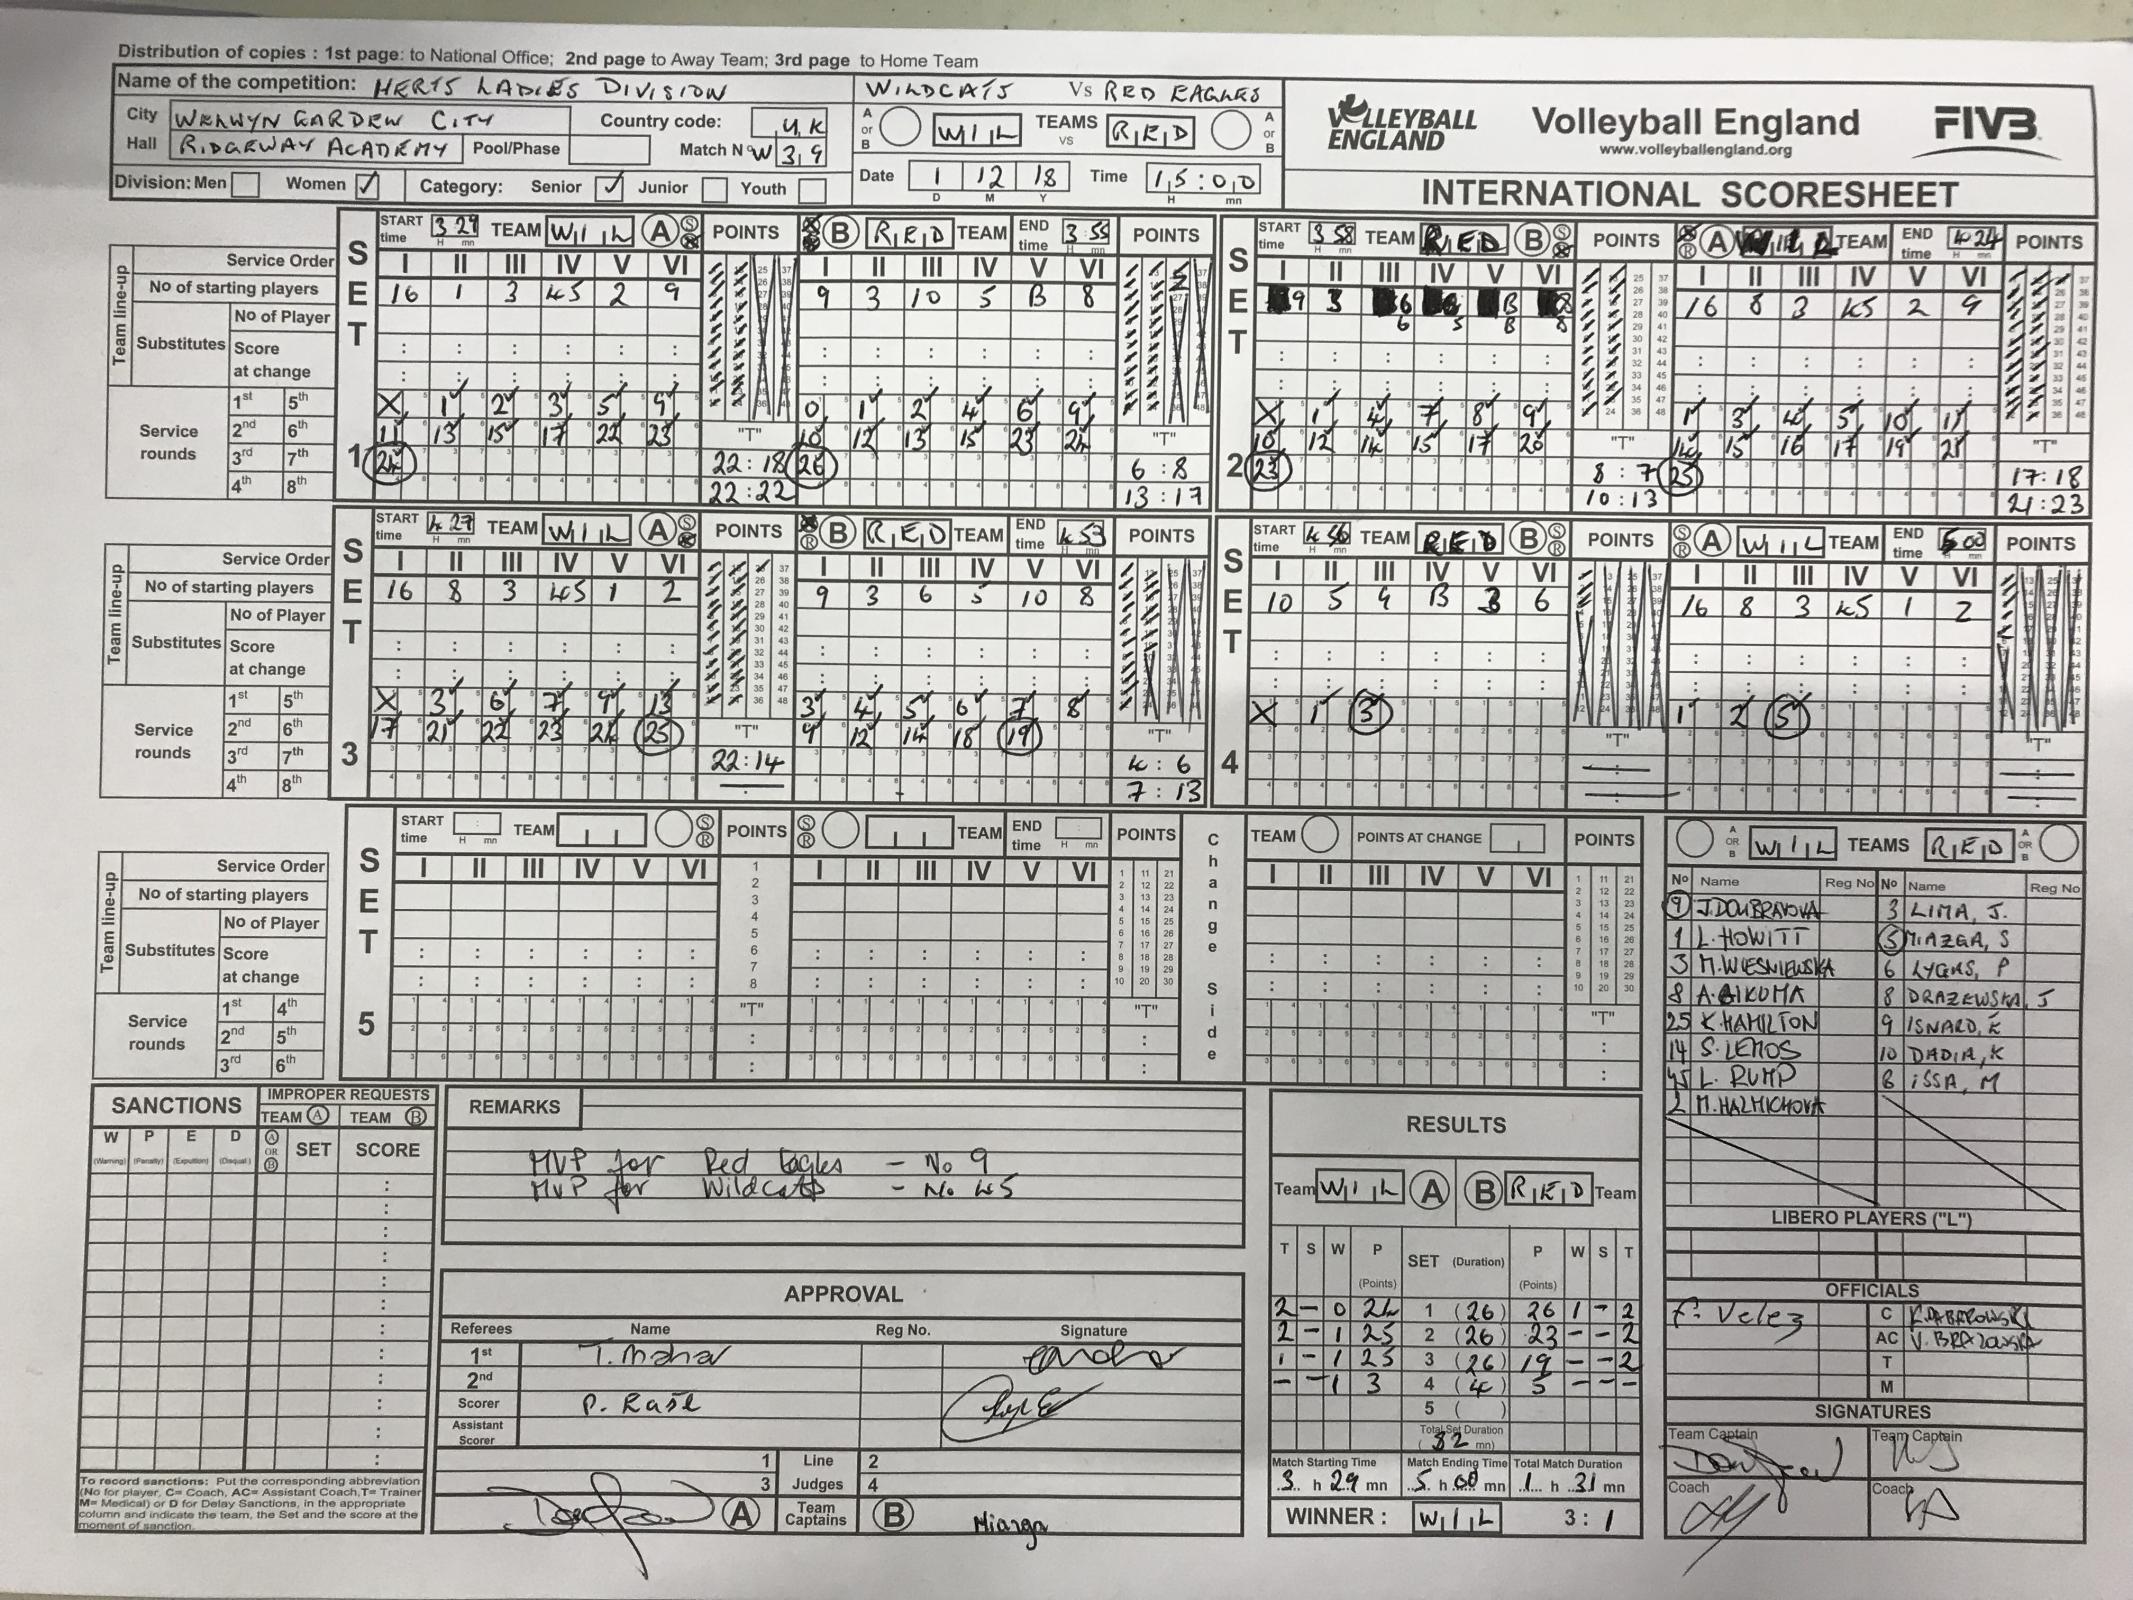 Distribution of copies : 1st page: to National Office; 2nd page to Away Team; 3rd page to Home Team
Name of the competition: HERTS LADIES DIVISION
City WELWYN GARDEN CITY Country code: UK
Hall RIDGEWAY ACADEMY Pool/Phase Match Nº W39
Division: Men Women ✓ Category: Senior ✓ Junior Youth
WILDCATS Vs RED EAGLES
A or B WIL TEAMS vs RED A or B
Date 1 12 18 Time 15:00
D M Y H mn
VOLLEYBALL ENGLAND Volleyball England FIVB
www.volleyballengland.org
INTERNATIONAL SCORESHEET
SET 1
START time 3 29 TEAM WIL A POINTS B RED TEAM END time 3 55 POINTS
Service Order I II III IV V VI I II III IV V VI
No of starting players 16 1 3 45 2 9 9 3 10 5 B 8
Team line-up
Substitutes No of Player
Score at change
Service rounds
1st 5th X 1 2 3 5 9 0 1 2 4 6 9
2nd 6th 11 13 15 17 22 23 10 12 13 15 23 24
3rd 7th 24 26
4th 8th
"T" 22:18 22:22 "T" 6:8 13:17
SET 2
START time 3 58 TEAM RED B POINTS A WIL TEAM END time 4 24 POINTS
I II III IV V VI I II III IV V VI
16 8 3 45 2 9
X 1 4 7 8 9 1 3 4 5 10 11
10 12 14 15 17 20 14 15 16 17 19 21
23 25
"T" 8:7 10:13 "T" 17:18 21:23
SET 3
START time 4 27 TEAM WIL A POINTS B RED TEAM END time 4 53 POINTS
Service Order I II III IV V VI I II III IV V VI
No of starting players 16 8 3 45 1 2 9 3 6 5 10 8
Team line-up
Substitutes No of Player
Score at change
Service rounds
1st 5th X 3 6 7 9 13 3 4 5 6 7 8
2nd 6th 17 21 22 23 24 25 9 12 14 18 19
3rd 7th
4th 8th
"T" 22:14 "T" 4:6 7:13
SET 4
START time 4 56 TEAM RED B POINTS A WIL TEAM END time 5 00 POINTS
I II III IV V VI I II III IV V VI
10 5 9 B 3 6 16 8 3 45 1 2
X 1 3 1 2 5
"T" "T"
SET 5
START time TEAM POINTS TEAM END time POINTS
Change Side
TEAM POINTS AT CHANGE POINTS
Service Order I II III IV V VI I II III IV V VI I II III IV V VI
No of starting players
Team line-up
Substitutes No of Player
Score at change
Service rounds
1st 4th
2nd 5th
3rd 6th
"T" "T" "T"
A OR B WIL TEAMS RED A OR B
No Name Reg No No Name Reg No
9 J.DOUBRAVOVA 3 LIMA, J.
1 L.HOWITT 5 MIAZGA, S
3 M.WIESNIEWSKA 6 LYGAS, P
8 A.GIKUMA 8 DRAZEWSKA, J
25 K.HAMILTON 9 ISNARD, K
14 S.LEMOS 10 DADIA, K
45 L.RUMP B ISSA, M
2 M.HALMICHOVA
LIBERO PLAYERS ("L")
OFFICIALS
F. Velez C K.DABROWSKI
AC V.BRAZOWSKA
T
M
SIGNATURES
Team Captain Team Captain
Coach Coach
SANCTIONS IMPROPER REQUESTS
TEAM A TEAM B
W P E D A OR B SET SCORE
(Warning) (Penalty) (Expultion) (Disqual.)
To record sanctions: Put the corresponding abbreviation
(No for player, C= Coach, AC= Assistant Coach,T= Trainer
M= Medical) or D for Delay Sanctions, in the appropriate
column and indicate the team, the Set and the score at the
moment of sanction.
REMARKS
MVP for Red Eagles - No 9
MVP for Wildcats - No 45
APPROVAL
Referees Name Reg No. Signature
1st T. Mahar
2nd
Scorer P. Kase
Assistant Scorer
1 Line 2
3 Judges 4
A Team Captains B Miazga
RESULTS
Team WIL A B RED Team
T S W P (Points) SET (Duration) P (Points) W S T
2 - 0 24 1 (26) 26 1 - 2
2 - 1 25 2 (26) 23 - - 2
1 - 1 25 3 (26) 19 - - 2
- - 1 3 4 (4) 5 - - -
5 ( )
Total Set Duration
(82 mn)
Match Starting Time Match Ending Time Total Match Duration
3 h 29 mn 5 h 00 mn 1 h 31 mn
WINNER : WIL 3 : 1